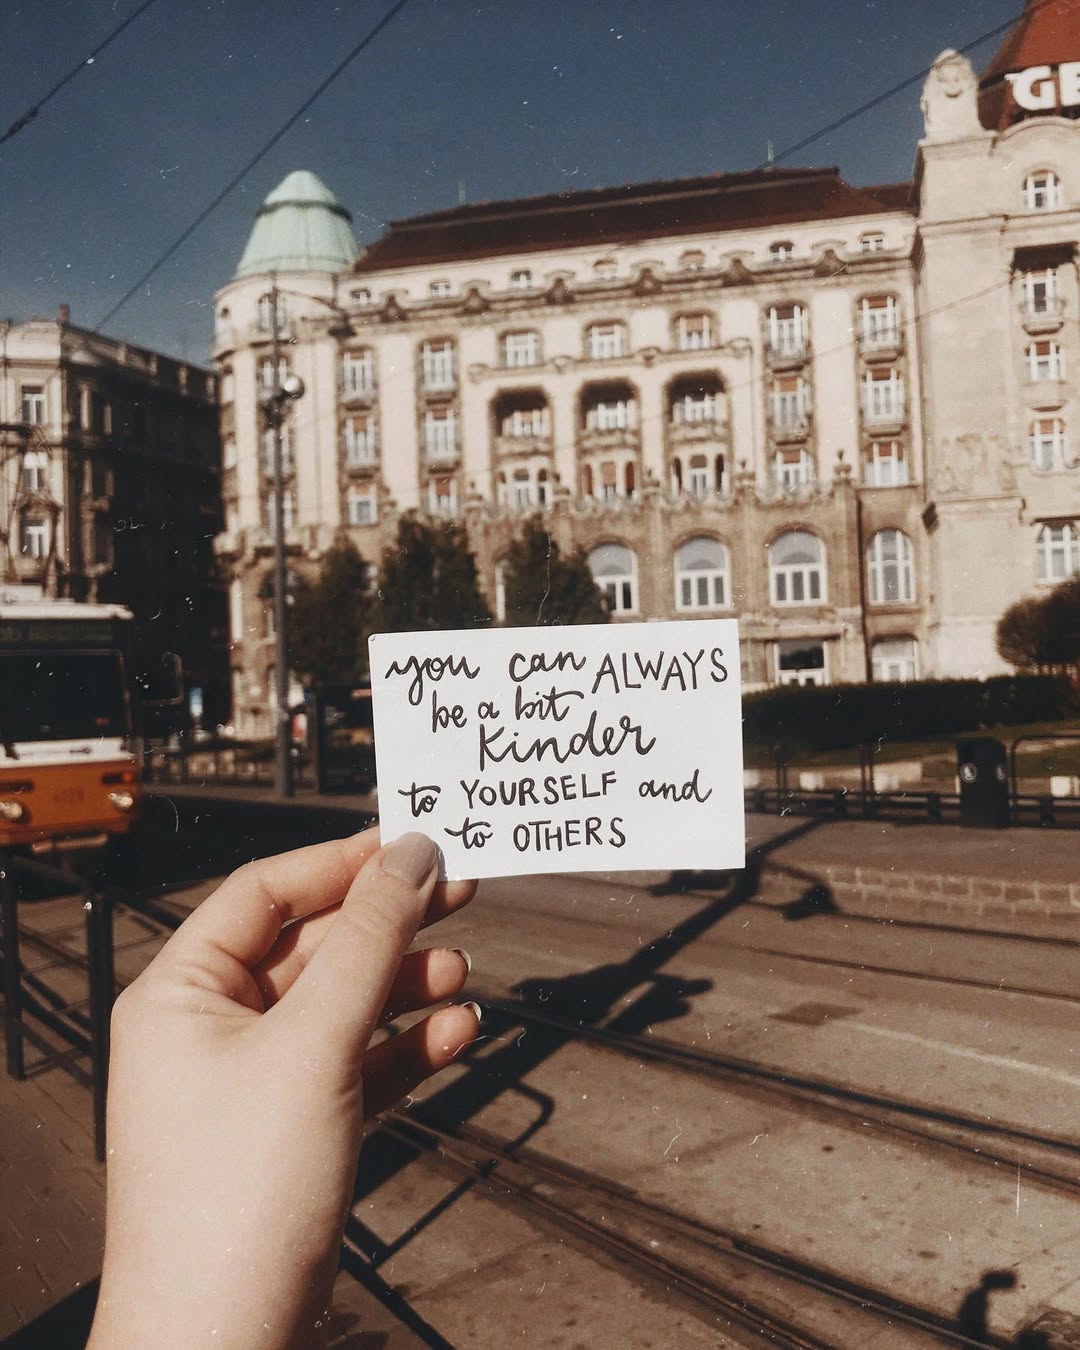 GE
you can ALWAYS
be a bit
Kinder
to YOURSELF and
to OTHERS